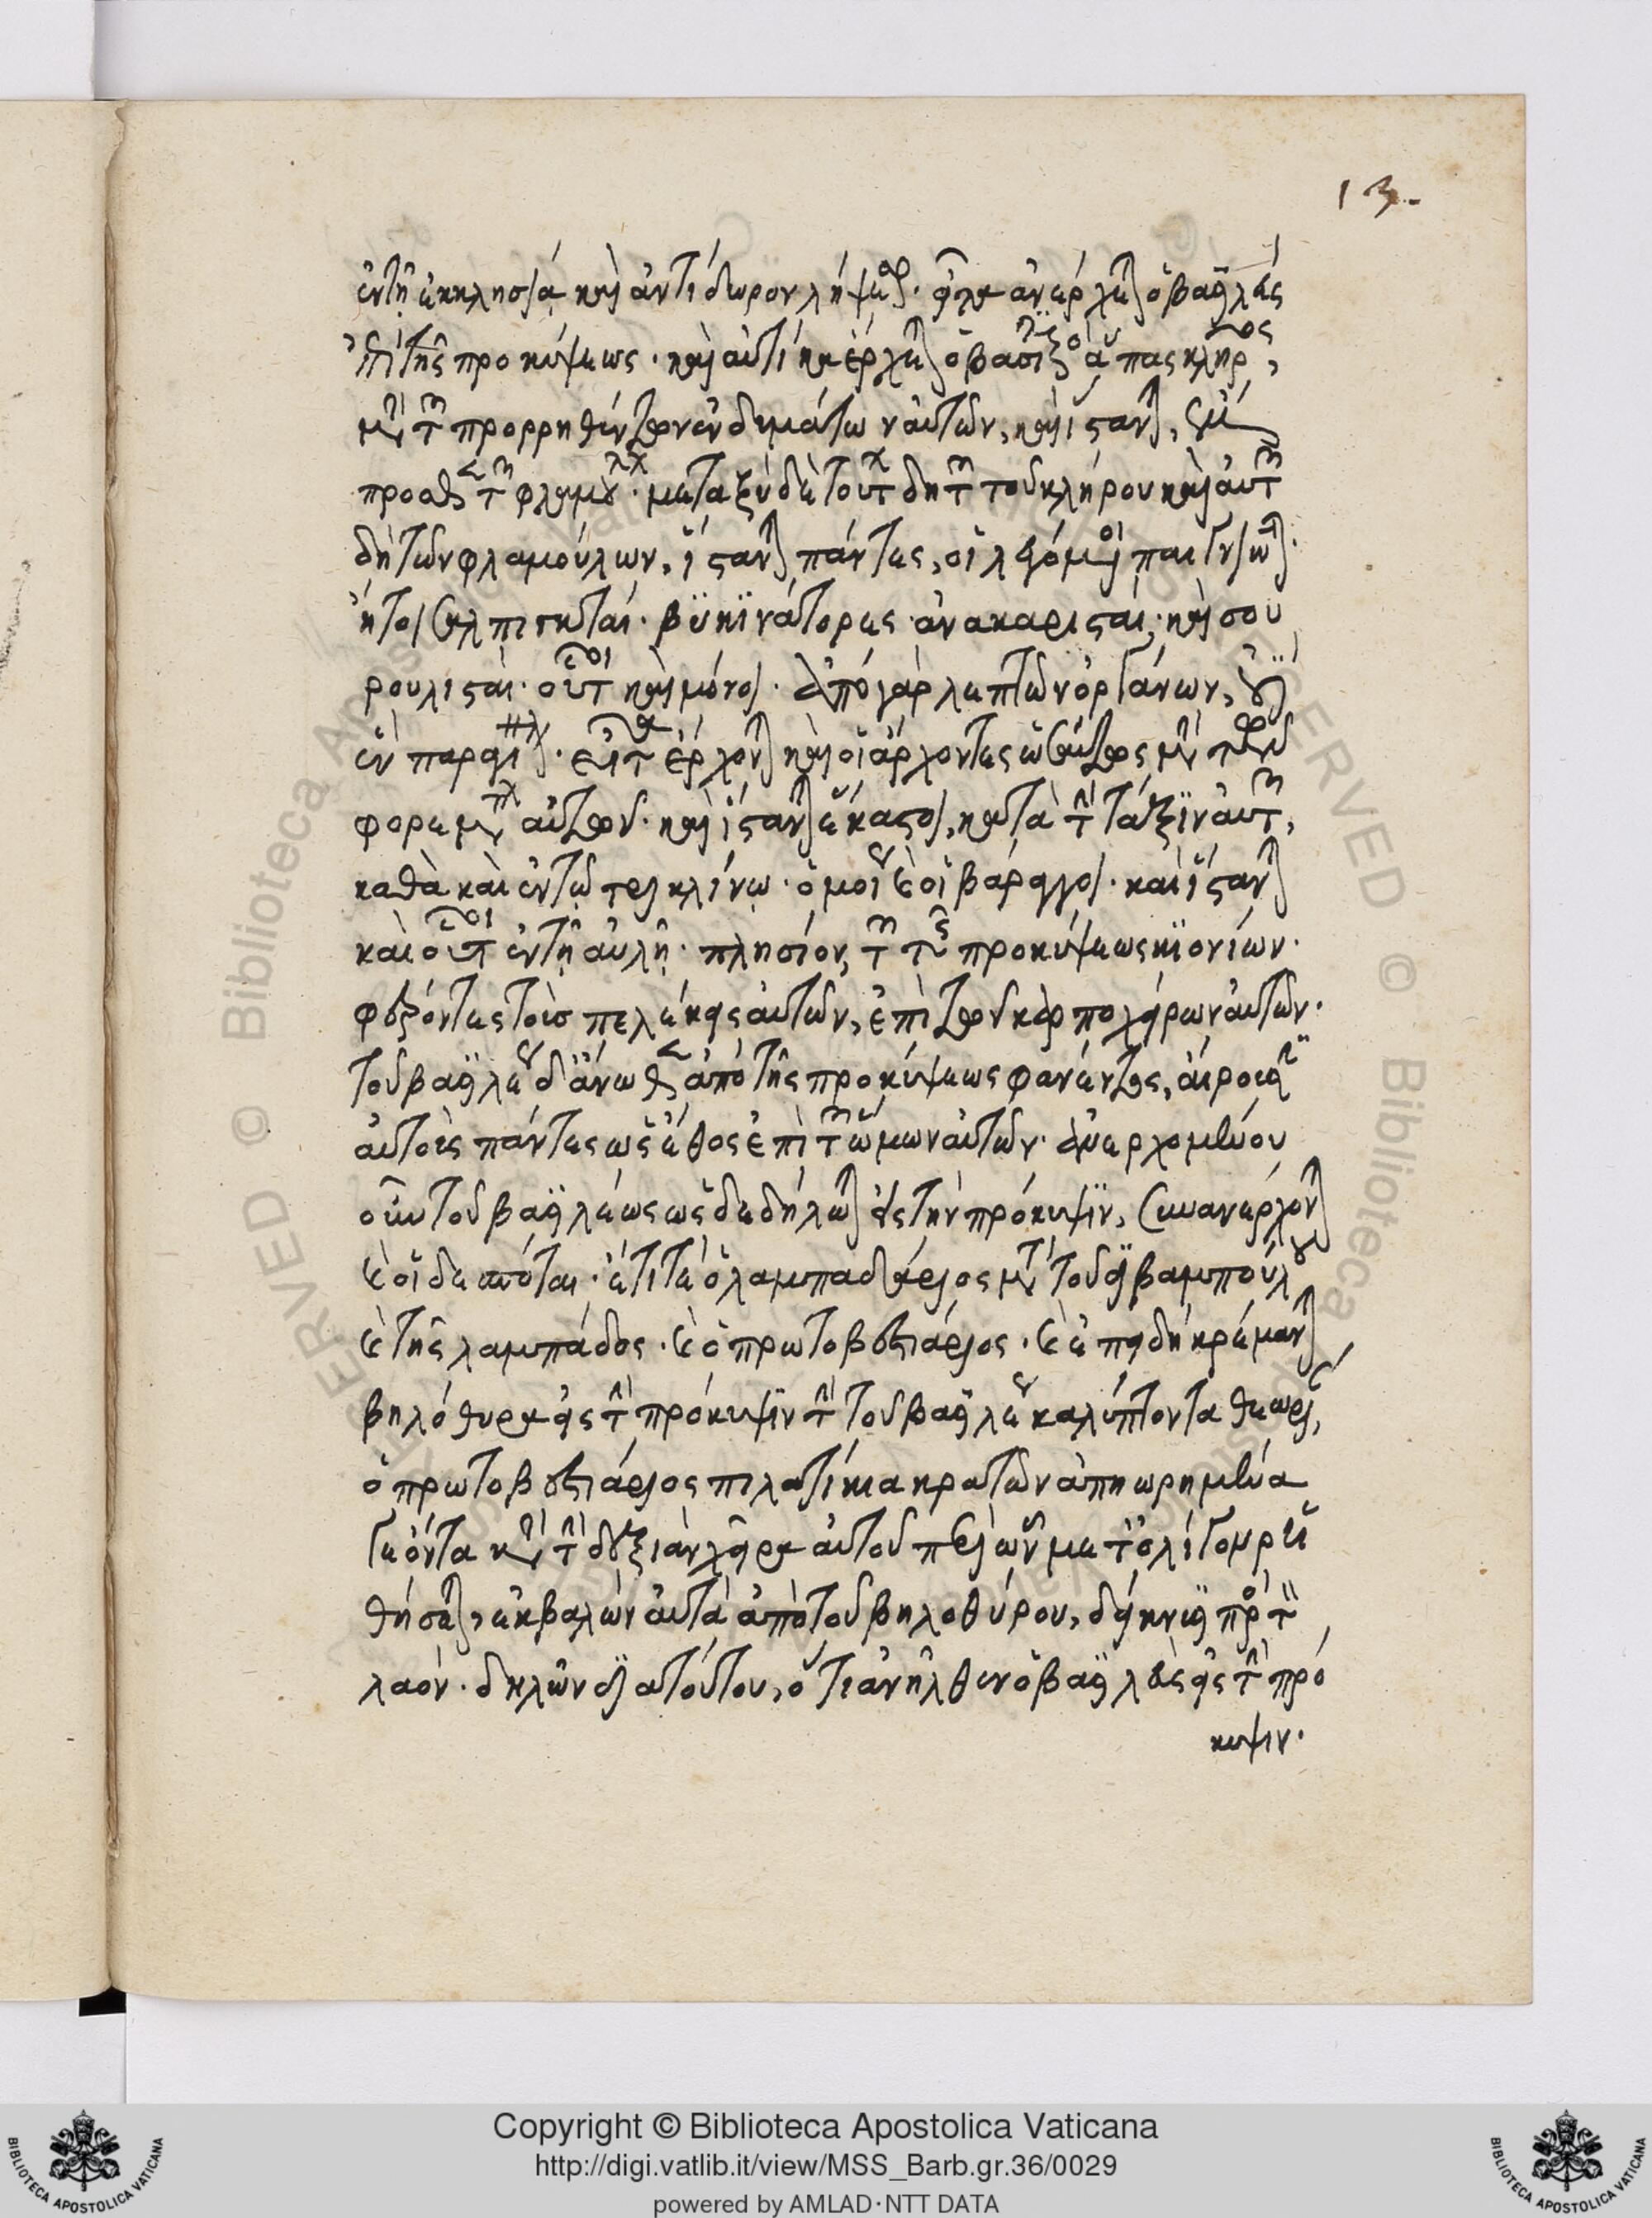 13.
ἐν τῇ ἐκκλησίᾳ καὶ ἀντίδωρον λήψεται. εἶτα ἀνέρχεται ὁ βασιλεὺς
ἐπὶ τῆς προκύψεως. καὶ αὐτίκα ἔρχεται ὁ βασιλικὸς ἅπας κλῆρος,
μετὰ τῶν προρρηθέντων ἐνδυμάτων αὐτῶν, καὶ ἵστανται,
τῶν φλαμούλων. μεταξὺ δὲ τούτων δὴ τῶν τοῦ κλήρου καὶ αὐτῶν
δὴ τῶν φλαμούλων, ἵστανται πάντες, οἱ λεγόμενοι παιγνιῶται.
ἤτοι σαλπιγκταί. βυκινάτορες ἀνακαρισταί. καὶ σου
ρουλισταί. οὗτοι καὶ μόνοι. ἀπὸ γὰρ λεπτῶν ὀργάνων, οὐδ
ἓν πάρεστι. εἶτα ἔρχονται καὶ οἱ ἄρχοντες ὡσαύτως μετὰ τῶν
φορεμάτων αὐτῶν. καὶ ἵστανται ἕκαστοι, κατὰ τὴν τάξιν αὐτῶν,
καθὰ καὶ ἐν τῷ τρικλίνῳ. ὁμοίως καὶ οἱ βάραγγοι. καὶ ἵστανται
καὶ οὗτοι ἐν τῇ αὐλῇ. πλησίον, τῶν τῆς προκύψεως κιονίων.
τοὺς πελέκεις αὐτῶν, ἐπὶ τῶν αὐτῶν.
τοῦ βασιλέως δ' ἄνωθεν ἀπὸ τῆς προκύψεως φανέντος, αἴρουσιν
αὐτοὺς πάντες ὡς ἔθος ἐπὶ τῶν ὤμων αὐτῶν. ἀνερχομένου
οὖν τοῦ βασιλέως ὡς δεδήλωται εἰς τὴν πρόκυψιν, συνανέρχονται
καὶ οἱ δεσπόται. ἔτι τε ὁ λαμπαδάριος μετὰ τοῦ διβαμπούλου
καὶ τῆς λαμπάδος. καὶ ὁ πρωτοβεστιάριος. καὶ ἐπειδὴ κρέμανται
βηλόθυρα εἰς τὴν πρόκυψιν τὴν τοῦ βασιλέως καλύπτοντα θεωρίαν,
ὁ πρωτοβεστιάριος πιλατίκια κρατῶν ἀπῃωρημένα
ὄντα κατὰ τὴν δεξιὰν χεῖρα αὐτοῦ περὶ ὧν μετ' ὀλίγον ῥη
θήσεται, ἐκβαλὼν αὐτὰ ἀπὸ τοῦ βηλοθύρου, δείκνυσι πρὸς τὸν
λαόν. δηλῶν διὰ τούτου, ὅτι ἀνῆλθεν ὁ βασιλεὺς εἰς τὴν πρό
κυψιν.
Copyright © Biblioteca Apostolica Vaticana
http://digi.vatlib.it/view/MSS_Barb.gr.36/0029
powered by AMLAD·NTT DATA